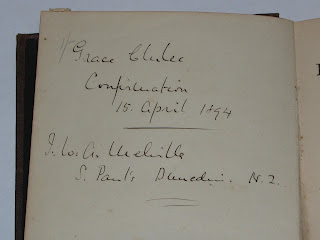 Grace
Confirmation
15. April 1894
Melville
S. Paul's Dunedin. N.Z.